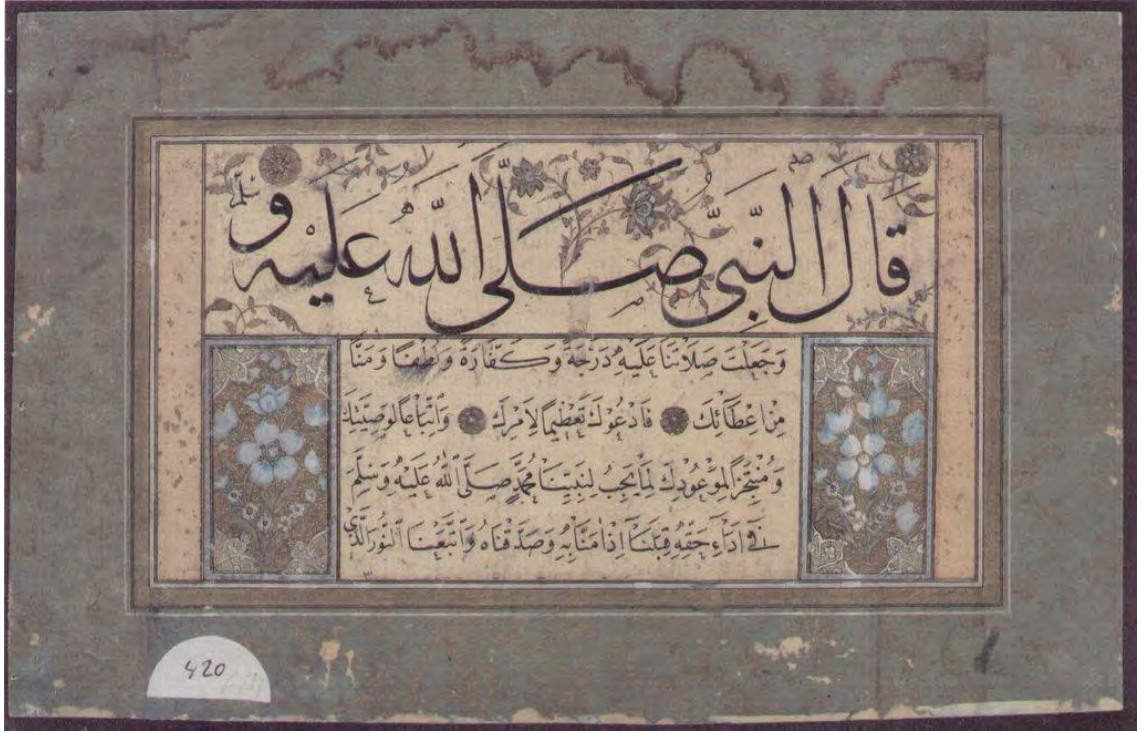 قَالَ النَّبِيُّ صَلَّى اللّٰهُ عَلَيْهِ وَسَلَّمَ
وَجَعَلْتَ صَلَاتَنَا عَلَيْهِ دَرَجَةً وَكَفَّارَةً وَلُطْفًا وَمَنًّا
مِنْ اِعْطَائِكَ فَادْعُوكَ تَعْظِيمًا لِاَمْرِكَ وَاتِّبَاعًا لِوَصِيَّتِكَ
وَمُنْتَجِزًا لِمَوْعُودِكَ لِمَا يَجِبُ لِنَبِيِّنَا مُحَمَّدٍ صَلَّى اللّٰهُ عَلَيْهِ وَسَلَّمَ
فِي اَدَاءِ حَقِّهِ قِبَلَنَا اِذْ اٰمَنَّا بِهِ وَصَدَّقْنَاهُ وَاتَّبَعْنَا النُّورَ الَّذِي
420